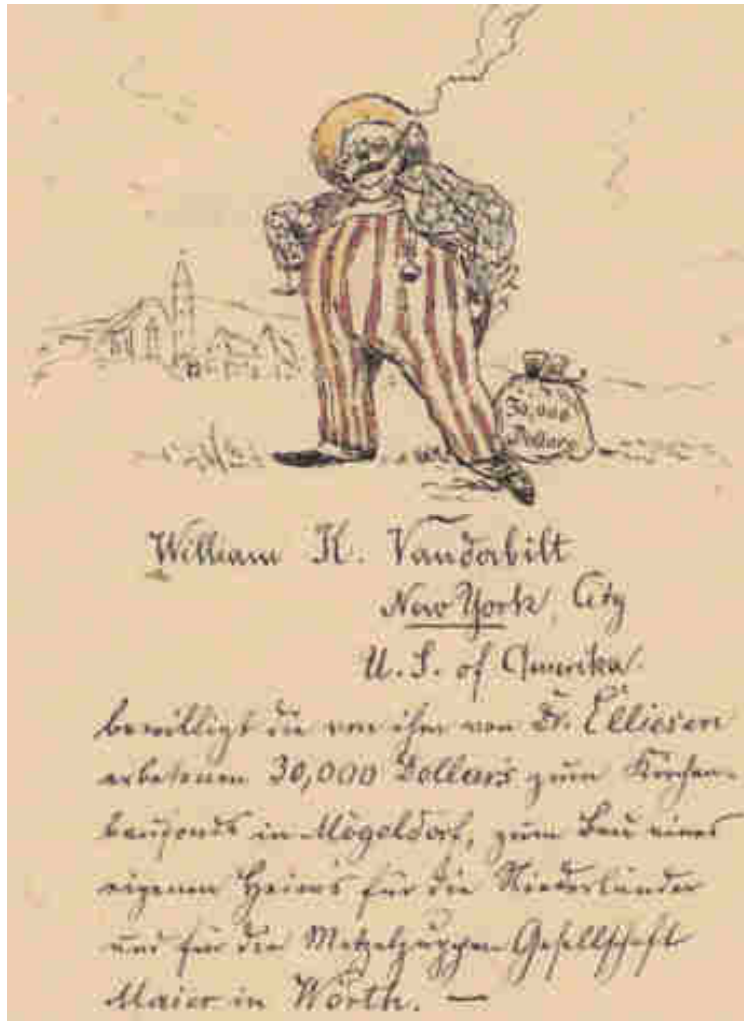 30,000
Dollars
William K. Vanderbilt
New York, City
U. S. of Amerika.
bewilligt die von ihm von Dr. Elliesen
erbetenen 30,000 Dollars zum Kirchen-
baufonds in Mögeldorf, zum Bau eines
eigenen Heims für die Niederländer
und für die Metzelsuppen-Gesellschaft
Maier in Wörth. —